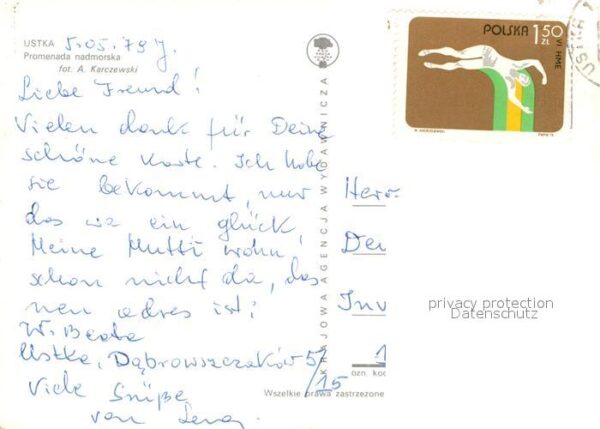 USTKA 5.05.79 r.
Promenada nadmorska
fot. A. Karczewski
Liebe Freund!
Vielen dank für Deine
schöne Karte. Ich habe
sie bekommt, nur
das wa ein glück,
Meine Mutti wohn,
schon nicht da, das
neu adres ist:
W. Beata
Ustka, Dąbrowszczaków 5/
15
Viele Grüße
von
KRAJOWA AGENCJA WYDAWNICZA
Wszelkie prawa zastrzeżone
POLSKA 1,50 ZŁ
VI HME
USTKA 1
Herr
Der
Inv
1
ozn. kod
privacy protection
Datenschutz